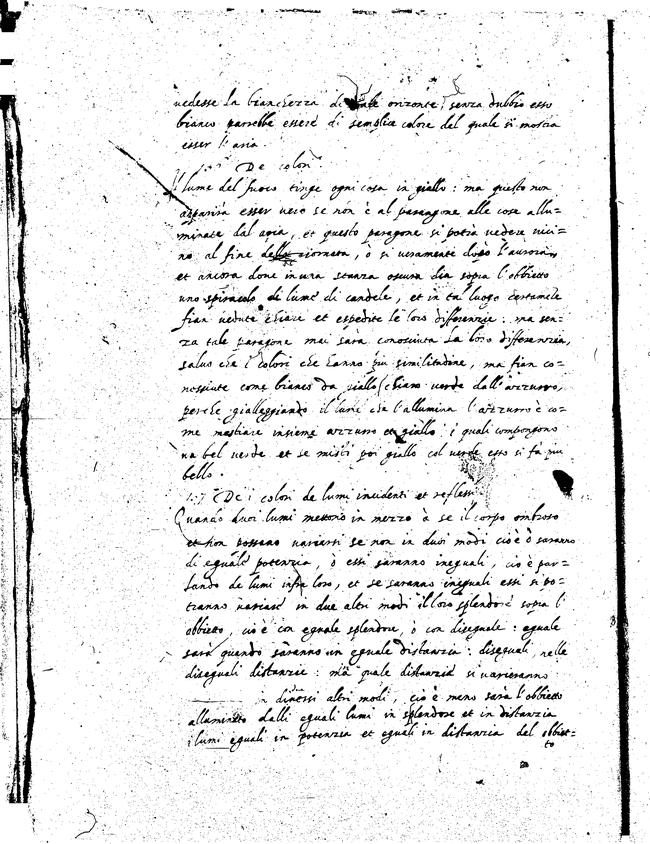 vedesse la bianchezza di tale orizonte, senza dubbio esso
bianco parrebbe essere di semplice colore del quale si mostra
esser l'aria.
De colori
Il lume del fuoco tinge ogni cosa in giallo: ma questo non
apparirà esser vero se non è al paragone alle cose allu=
minate dal aria, et questo paragone si potrà vedere vici=
no al fine della giornata, ò si veramente dopo l'aurora,
et ancora dove in una stanza oscura dia sopra l'obbietto
uno spiracolo di lume di candele, et in tal luogo certamente
fian vedute chiare et espedite le loro differenzie: ma sen=
za tale paragone mai sarà conosciuta la loro differenzia,
salvo che i colori che hanno più similitudine, ma fian co=
nossiute come bianco da giallo, chiaro verde dall'azzurro,
perche gialleggiando il lume che l'allumina l'azzurro è co=
me mestiare insieme azzurro et giallo, i quali compongono
un bel verde et se misti poi giallo col verde esso si fa piu
bello.
De i colori de lumi incidenti et reflessi
Quando duoi lumi mettono in mezzo à se il corpo ombroso
et non possano variarsi se non in duoi modi cioè ò saranno
di equale potenzia, ò essi saranno inequali, cioè par=
lando de lumi infra loro, et se saranno inequali essi si po=
tranno variare in due altri modi il loro splendore sopra l'
obbietto, cioè con equale splendore, ò con disequale: equale
sarà quando saranno in equale distanzia: disequali, nelle
disequali distanzie: ma quale distanzia si varieranno
in diversi altri modi, cioè meno sarà l'obbietto
alluminato dalli equali lumi in splendore et in distanzia
i lumi equali in potenzia et equali in distanzia del obbiet=
to